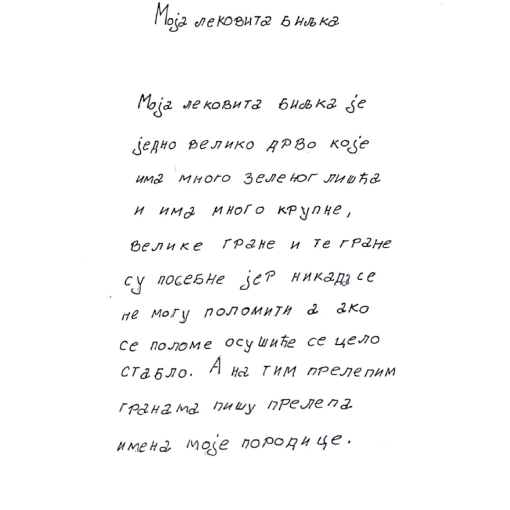 Моја лековита биљка
Моја лековита биљка је
једно велико дрво које
има много зеленог лишћа
и има много крупне,
велике гране и те гране
су посебне јер никада се
не могу поломити а ако
се поломе осушиће се цело
стабло. А на тим прелепим
гранама пишу прелепа
имена моје породице.